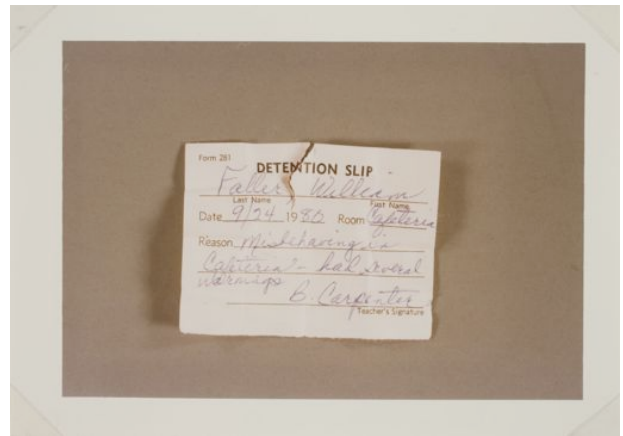 Form 281
DETENTION SLIP
Faller William
Last Name First Name
Date 9/24 1980 Room Cafeteria
Reason Misbehaving in
Cafeteria - had several
warnings
B. Carpenter
Teacher's Signature